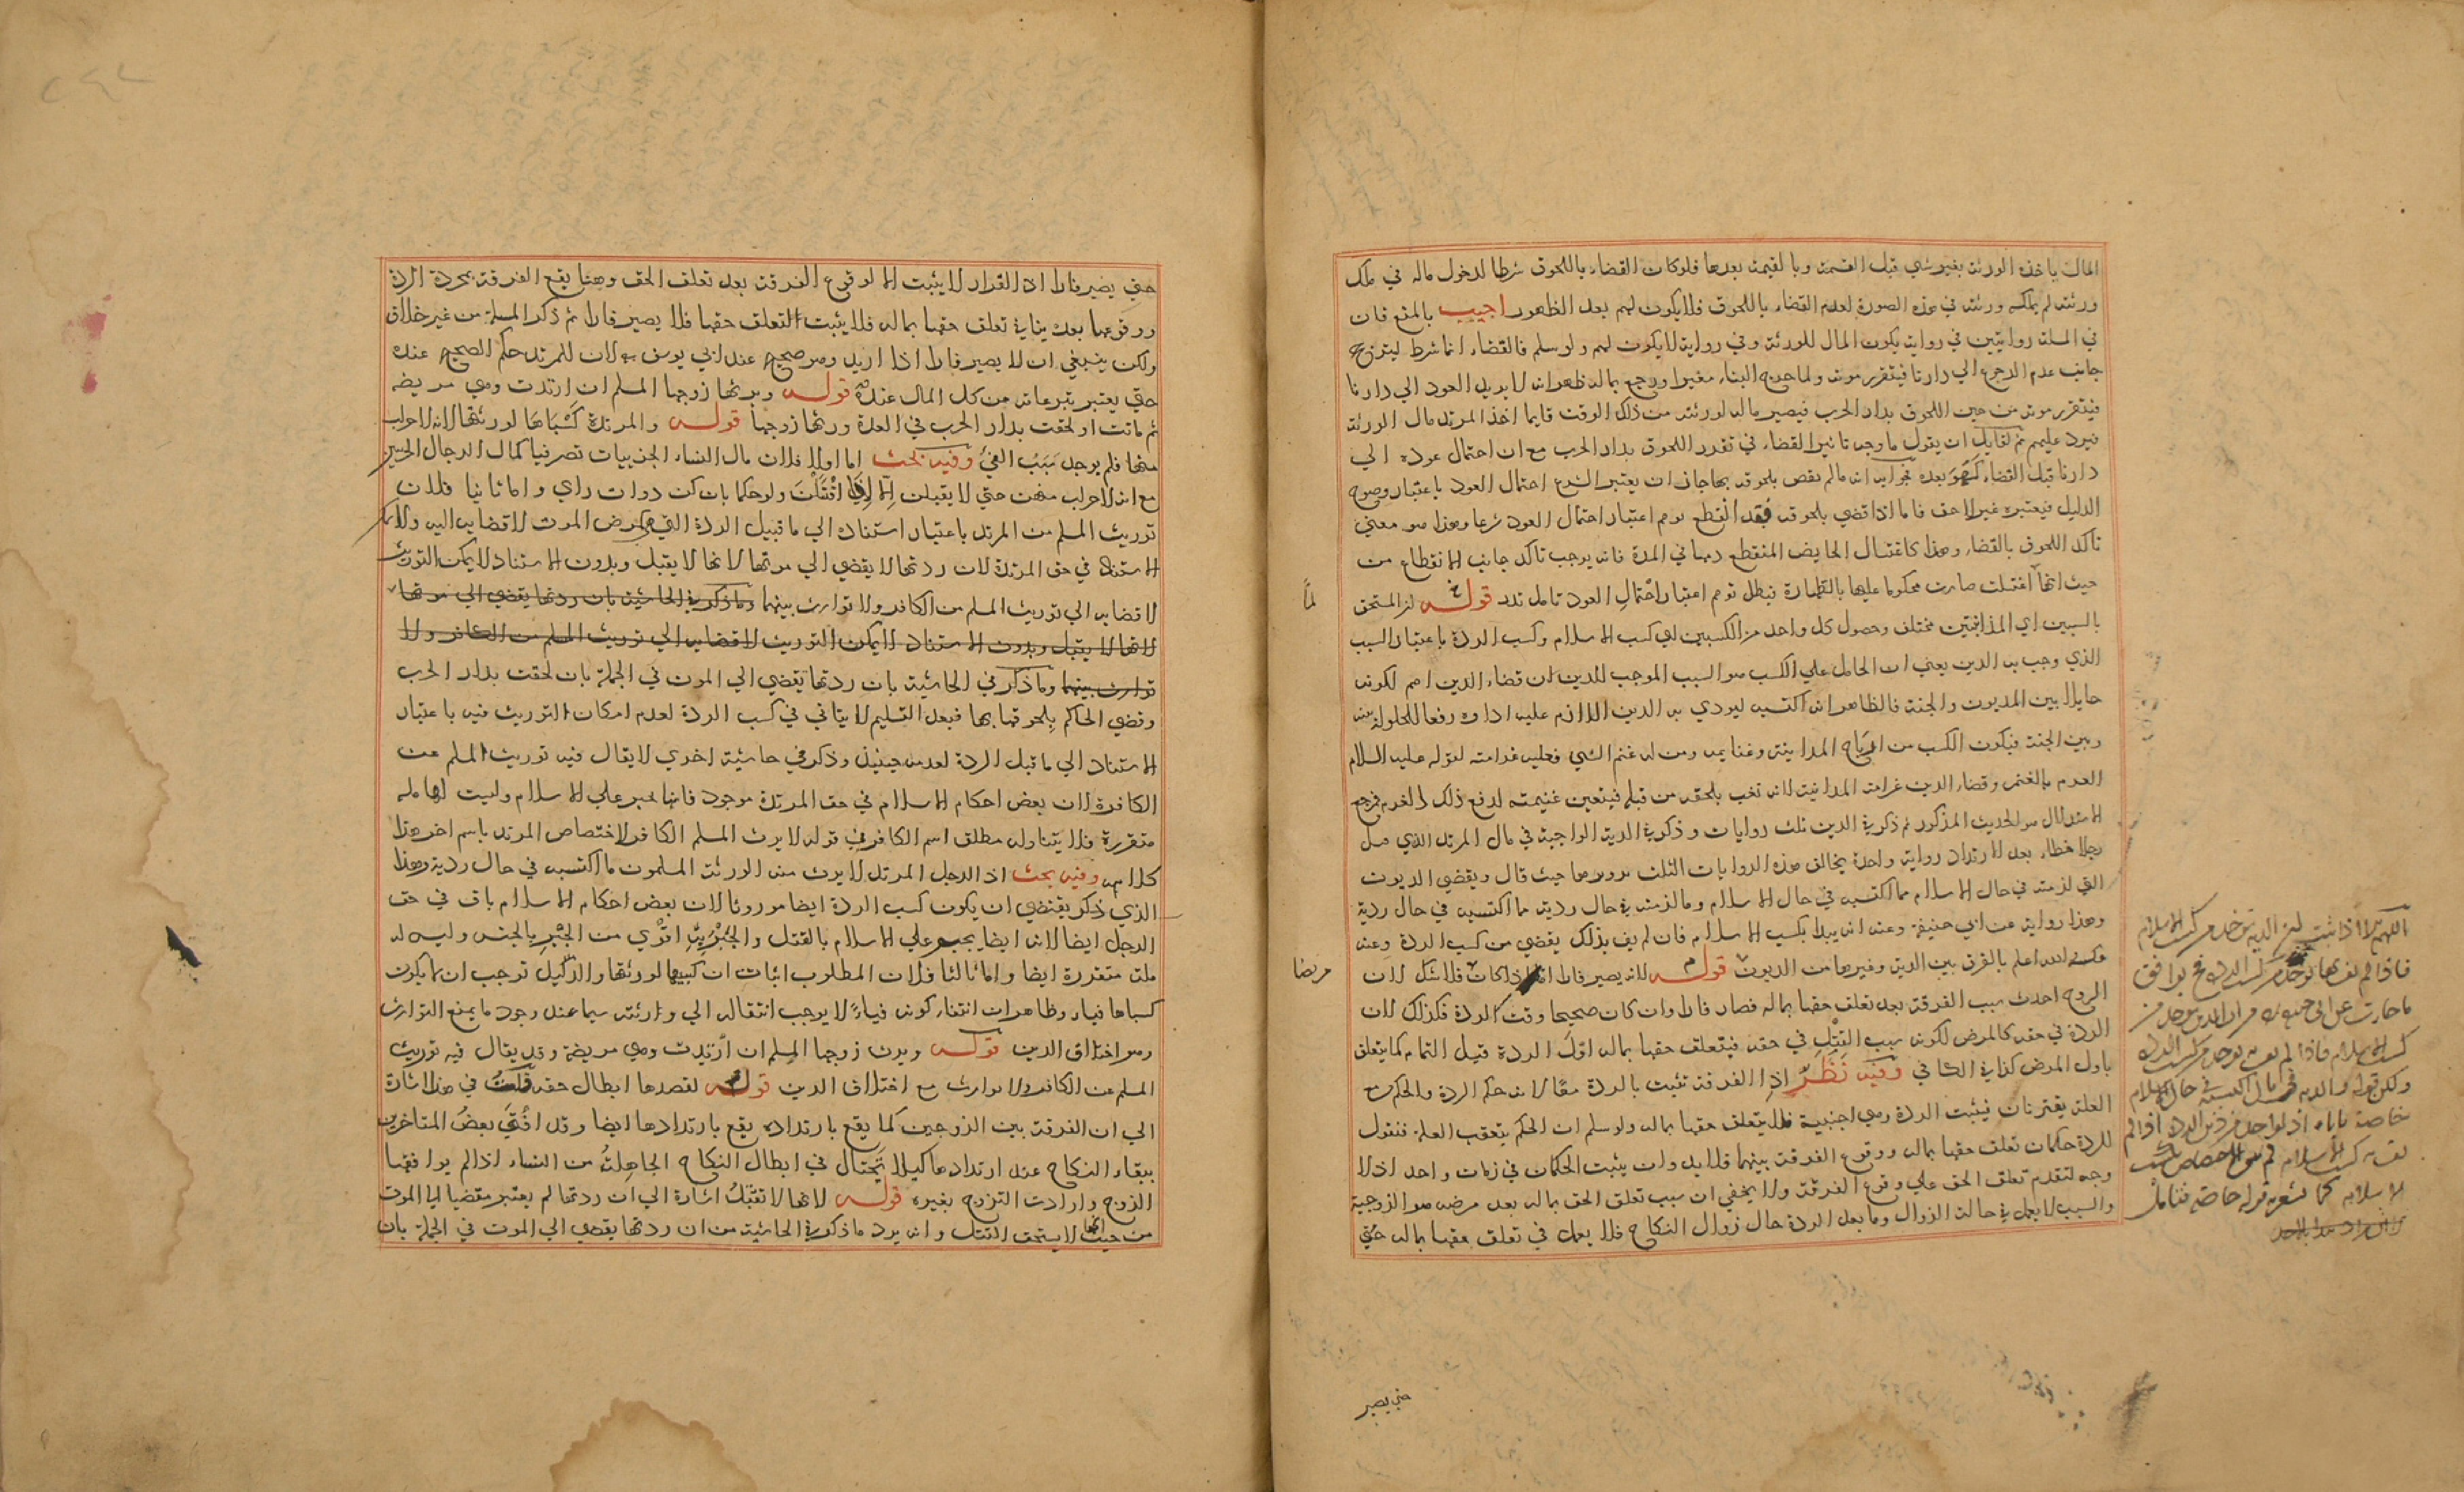 المال ياخذه الورثة بغير شي قبل القسمة وبالقيمة بعدها فلو كان القضاء باللحوق شرطا لدخول ماله في ملك
ورثته لم يملكه ورثته في هذه الصورة لعدم القضاء باللحوق فلا يكون لهم بعد الظهور اجيب بالمنع فان
في المسلة روايتين في رواية يكون المال للورثة وفي رواية لا يكون لهم ولو سلم فالقضاء انما شرط ليترجح
جانب عدم الرجوع الي دارنا فيتقرر موته ولما رجع بماله ظهر انه لا يريد العود الي دارنا
فيتقرر موته من حين اللحوق بدار الحرب فيصير ماله لورثته من ذلك الوقت قايما اخذ المرتد مال الورثة
فيرد عليهم ثم لقايل ان يقول ما وجه تاثير القضاء في تقرر اللحوق بدار الحرب مع ان احتمال عوده الي
دارنا قبل القضاء كهو بعده جوابه انه مالم نقض بلحوقه بها جاز ان يعتبر الشرع احتمال العود باعتبار وضوح
الدليل فيعتبره غير لاحق فاما اذا قضي بلحوقه فقد انقطع توهم اعتبار احتمال العود شرعا وهذا هو معني
تاكد اللحوق بالقضاء وهذا كاغتسال الحايض المنقطع دمها في المدة فانه يوجب تاكد جانب الانقطاع من
حيث انها لما اغتسلت صارت محكوما عليها بالطهارة فبطل توهم اعتبار احتمال العود تامل تدر قوله لان المستحق
بالسببين اي المداينتين مختلف وحصول كل واحد من الكسبين اي كسب الاسلام وكسب الردة باعتبار السبب
الذي وجب به الدين يعني ان الحامل علي الكسب هو السبب الموجب للدين ان قضاء الدين اهم لكونه
حايلا بين المديون والجنة فالظاهر انه اكتسبه ليودي به الدين اللازم عليه اداوه رفعا للحيلولة بينه
وبين الجنة فيكون الكسب من ارباح المداينة وغنايمه ومن له غنم الشي فعليه غرامته لقوله عليه السلام
الغرم بالغنم وقضاء الدين غرامة المداينة لانه تعب يلحقه من قبلها فيتعين غنيمته لدفع ذلك الغرم فمرجع
الاستدلال هو الحديث المذكور ثم ذكر في الدين ثلث روايات وذكر في الدية الواجبة في مال المرتد الذي قتل
رجلا خطاء بعد الارتداد رواية واحدة يخالف هذه الروايات الثلث مرويها حيث قال ويقضي الديون
التي لزمته في حال الاسلام مما اكتسبه في حال الاسلام وما لزمته في حال ردته مما اكتسبه في حال ردته
وهذا رواية عن ابي حنيفة وعنه انه يبدا بكسب الاسلام فان لم يف بذلك يقضي من كسب الردة وعنه
عكسه لعله اعلم بالفرق بين الدية وغيرها من الديون قوله لانه يصير فارا اما اذا كان مريضا فلا شك لان
الزوج احدث سبب الفرقة بعد تعلق حقها بماله فصار فارا وان كان صحيحا وقت الردة فكذلك لان
الردة في حقه كالمرض لكونه سبب القتل في حقه فيتعلق حقها بماله اول الردة قبيل التمام كما يتعلق
باول المرض كذا في الكافي وفيه نظر اذ الفرقة تثبت بالردة معا لانه حكم الردة والحكم مع
العلة يقترنان فيثبت الردة وهي اجنبية فلا يتعلق حقها بماله ولو سلم ان الحكم يتعقب العلة فنقول
للردة حكمان تعلق حقها بماله ووقوع الفرقة بينهما فلا بد وان يثبت الحكمان في زمان واحد اذ لا
وجه لتقدم تعلق الحق علي وقوع الفرقة ولا يخفي ان سبب تعلق الحق بماله بعد مرضه هو الزوجية
والسبب لا يعمل في حالة الزوال وما بعد الردة حال زوال النكاح فلا يعمل في تعلق حقها بماله حتي
لما
مريضا
حتي يصير
حتي يصير فارا اذ القرار لا يثبت الا لوقوع الفرقة بعد تعلق الحق وههنا يقع الفرقة بمجردة الردة
ووقوعها بعد ينافي تعلق حقها بماله فلا يثبت التعلق حقها فلا يصير فارا ثم ذكر المسلة من غير خلاف
ولكن ينبغي ان لا يصير فارا اذا اريد وهو صحيح عند ابي يوسف رحمه لان للمرتد حكم الصحيح عنده
حتي يعتبر تبرعاته من كل المال عنده قوله ويرثها زوجها المسلم ان ارتدت وهي مريضة
ثم ماتت او لحقت بدار الحرب في العدة ورثها زوجها قوله والمرتدة كسباها لورثتها لانه لا حراب
منها فلم يوجد سبب الفئ وفيه بحث اما اولا فلان مال النساء الحربيات تصر فيا كمال الرجال الحربيين
مع انه لا حراب منهن حتي لا يقبلن الا اذا اقتتلن ولو حكما بان كن ذوات راي واما ثانيا فلان
توريث المسلم من المرتد باعتبار استناده الي ما قبيل الردة التي هي كمرض الموت لافضايه اليه ولا يمكن
الاستناد في حق المرتدة لان ردتها لا يفضي الي موتها لانها لا يقبل وبدون الاستناد لا يمكن التوريث
لافضايه الي توريث المسلم من الكافر ولا توارث بينهما وما ذكر في الحاشية بان ردتها يفضي الي موتها
لانها لا يقبل وبدون الاستناد لا يمكن التوريث لافضايه الي توريث المسلم من الكافر ولا
توارث بينهما وما ذكر في الحاشية بان ردتها يفضي الي الموت في الجملة بان لحقت بدار الحرب
وقضي الحاكم بلحوقها بها فبعد التسليم لا يتاتي في كسب الردة لعدم امكان التوريث فيه باعتبار
الاستناد الي ما قبل الردة لعدمه حينيذ وذكر في حاشية اخري لا يقال فيه توريث المسلم من
الكافرة لان بعض احكام الاسلام في حق المرتدة موجود فانها تجبر علي الاسلام وليست لها ملة
متقررة فلا يتناوله مطلق اسم الكافر في قوله لا يرث المسلم الكافر لاختصاص المرتد باسم اخر هذا
كلامه وفيه بحث اذ الرجل المرتد لا يرث منه الورثة المسلمون ما اكتسبه في حال ردته وهذا
الذي ذكر يقتضي ان يكون كسب الردة ايضا موروثا لان بعض احكام الاسلام باق في حق
الرجل ايضا لانه ايضا يجبر علي الاسلام بالقتل والجبر به اقوي من الجبر بالحبس وليس له
ملة متقررة ايضا واما ثالثا فلان المطلوب اثبات ان كسبيها لورثتها والدليل توجب ان لا يكون
كسباها فياء وظاهر ان انتفاء كونه فياء لا يوجب انتقاله الي وارثته سيما عند وجود ما يمنع التوارث
وهو اختلاف الدين قوله ويرث زوجها المسلم ان ارتدت وهي مريضة وقد يقال فيه توريث
المسلم من الكافر ولا توارث مع اختلاف الدين قوله لقصدها ابطال حقه قلت في هذا اشارة
الي ان الفرقة بين الزوجين كما يقع بارتداده يقع بارتدادها ايضا وقد افتي بعض المتاخرين
ببقاء النكاح عند ارتدادها كيلا تحتال في ابطال النكاح الجاهلة من النساء اذا لم يوافقها
الزوج وارادت التزوج بغيره قوله لانها لا تقتل اشارة الي ان ردتها لم يعتبر مفضيا الي الموت
من حيث انها لا يستحق القتل وانه يرد ما ذكر في الحاشية من ان ردتها يفضي الي الموت في الجملة بان